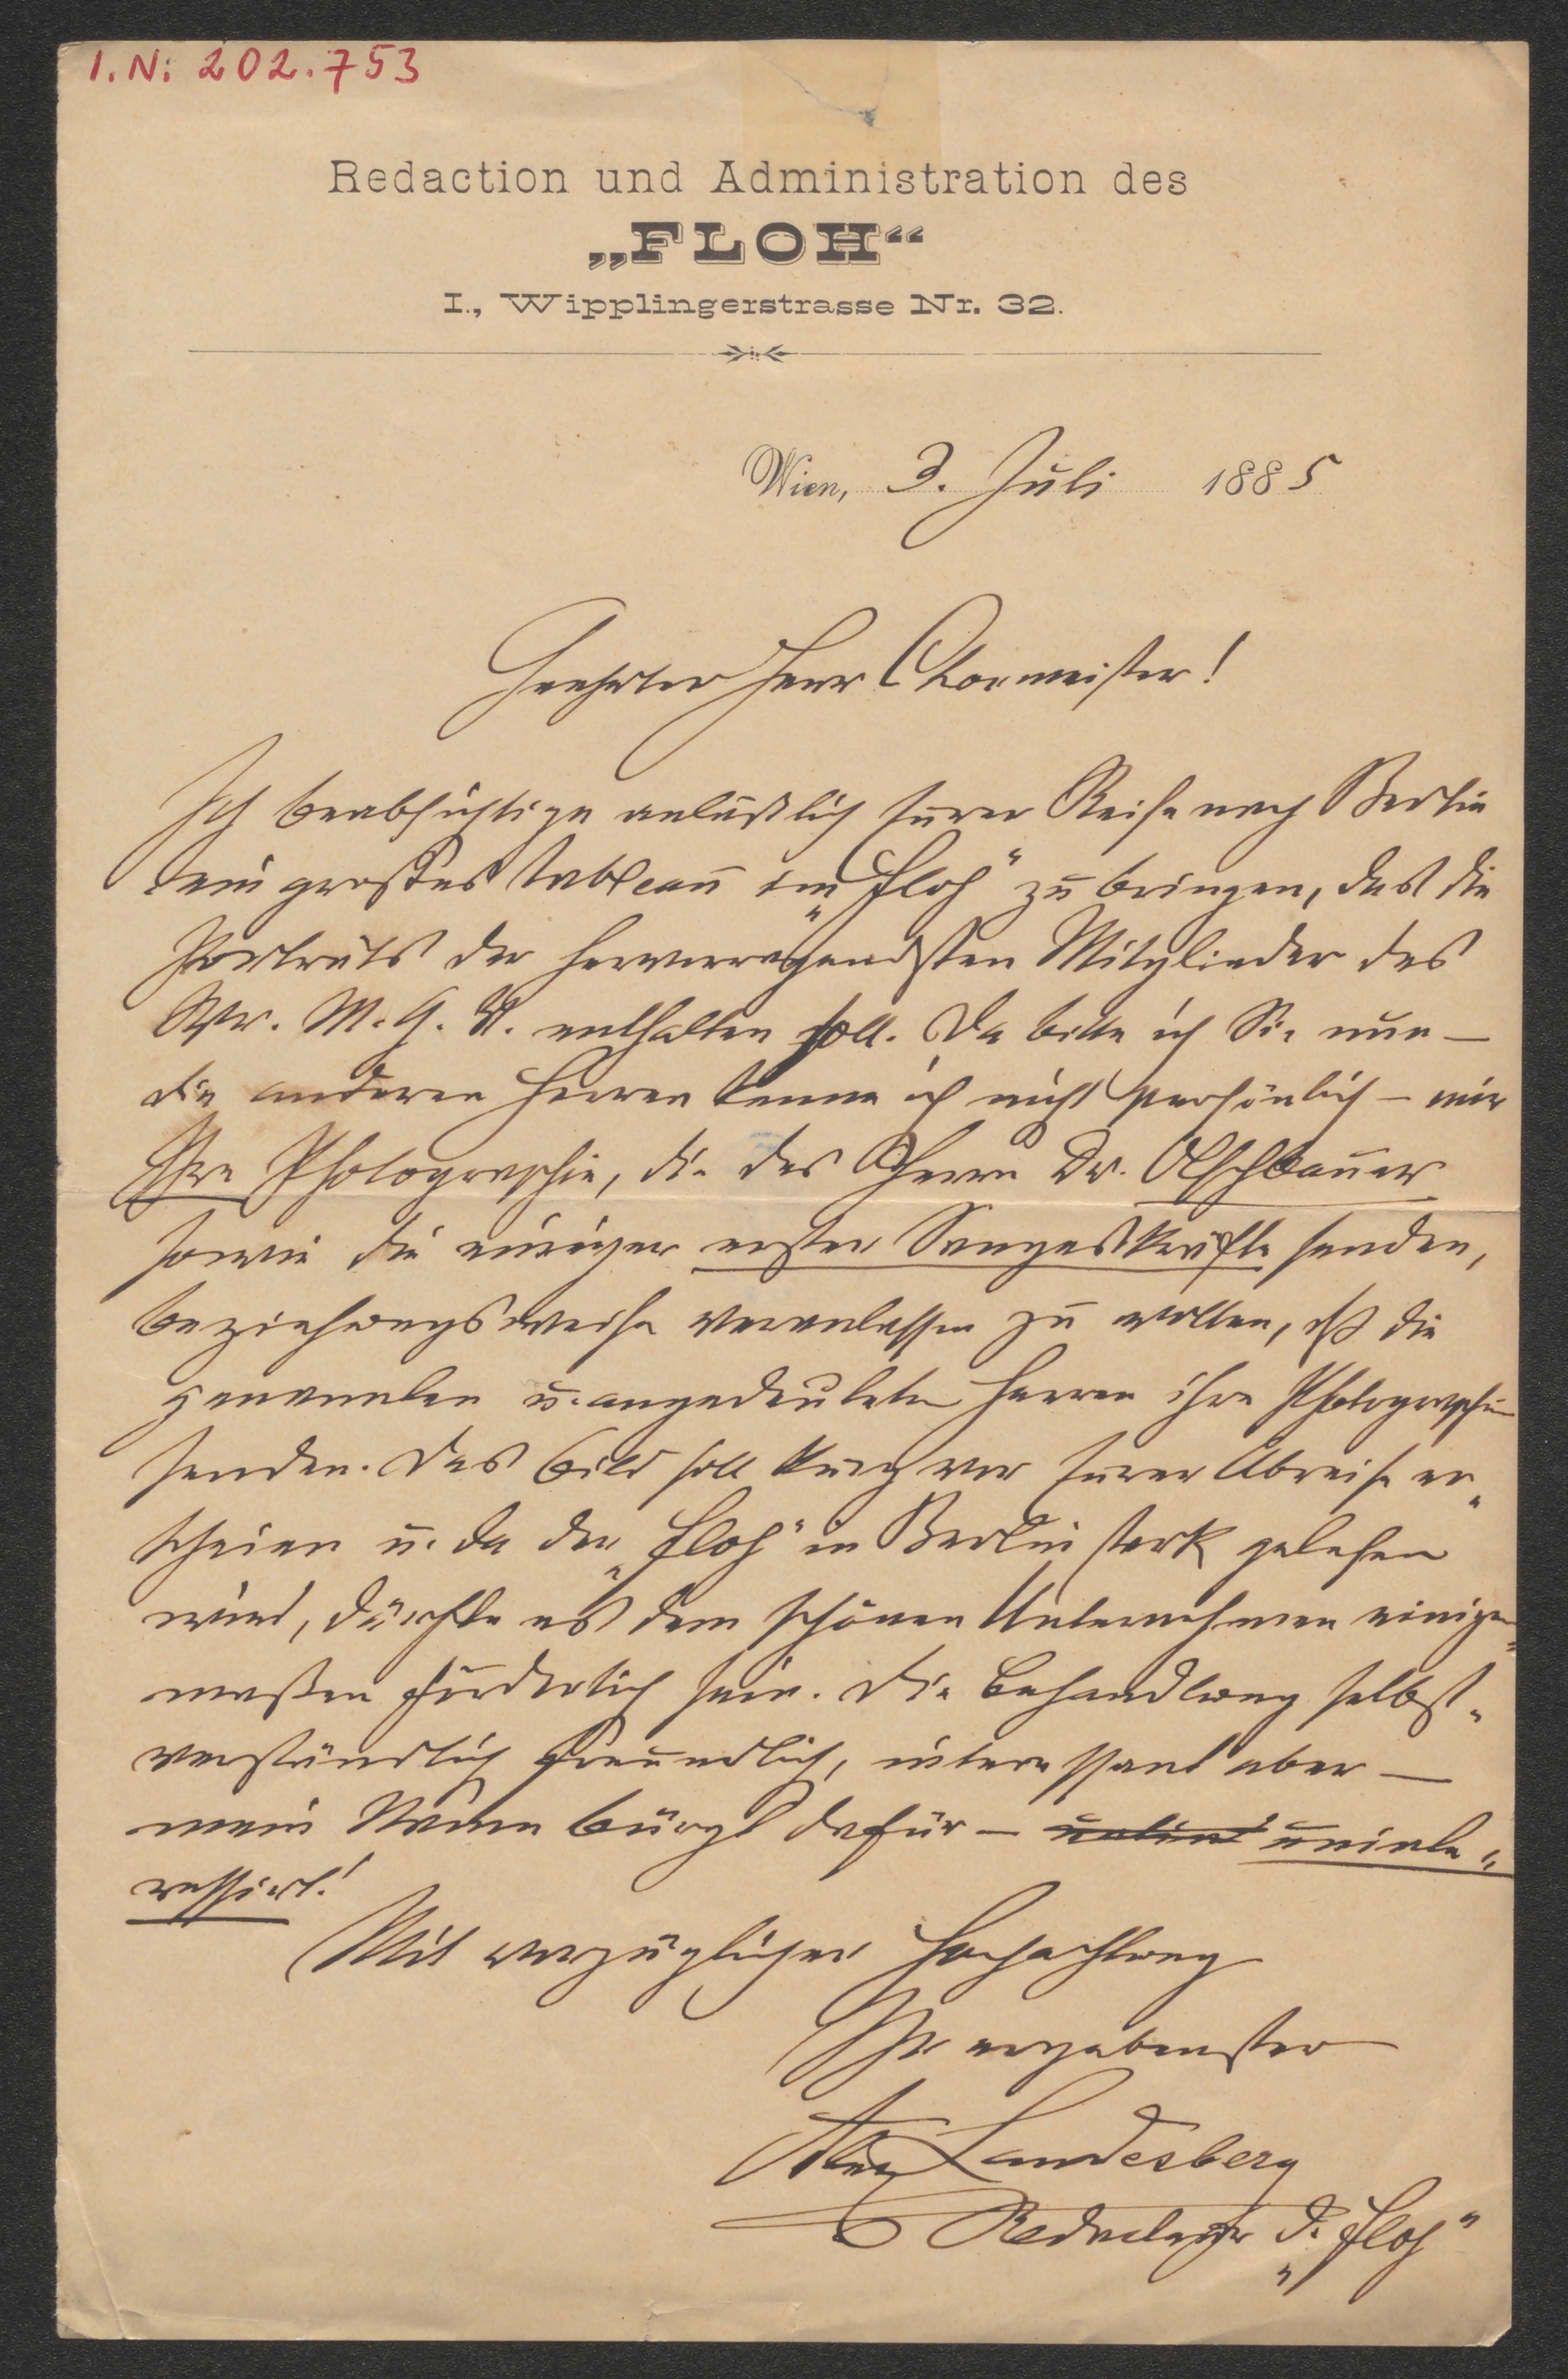 I. N: 202.753
Redaction und Administration des
„FLOH“
I., Wipplingerstrasse Nr. 32.
Wien, 3. Juli 1885
Geehrter Herr Chormeister!
Ich beabsichtige anläßlich Eurer Reise nach Berlin
ein großes Tableau im „Floh“ zu bringen, das die
Porträts der hervorragendsten Mitglieder des
Wr. M. G. V. enthalten soll. Da bitte ich Sie nun —
die anderen Herren kenne ich nicht persönlich – mir
Ihre Photographie, die des Herrn Dr. Olschbauer
sowie die einiger erster Sangeskräfte senden,
beziehungsweise veranlassen zu wollen, dß die
genannten u. angedeuteten Herren ihre Photographien
senden. Das Bild soll kurz vor Eurer Abreise er„
scheinen u. da der „Floh“ in Berlin stark gelesen
wird, dürfte es dem schönen Unternehmen einiger„
maßen förderlich sein. Die Behandlung selbst„
verständlich freundlich, interessant aber —
mein Name bürgt dafür — uninte„
ressirt!
Mit vorzüglicher Hochachtung
Ihr ergebenster
Alex Landesberg
Redacteur d. „Floh“